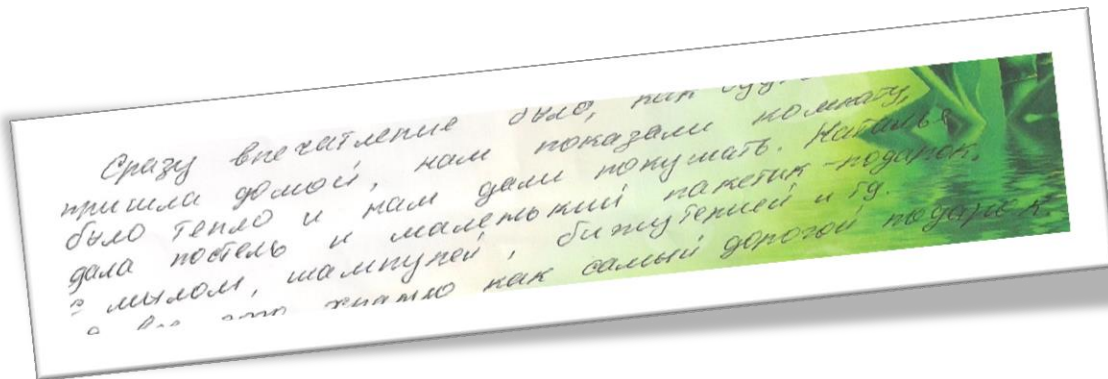 Сразу впечатление было, как
пришла домой, нам показали комнату,
было тепло и нам дали покушать. Наталья
дала постель и маленький пакетик-подарок.
с мылом, шампуней, бижутерией и тд.
как самый дорогой подарок.